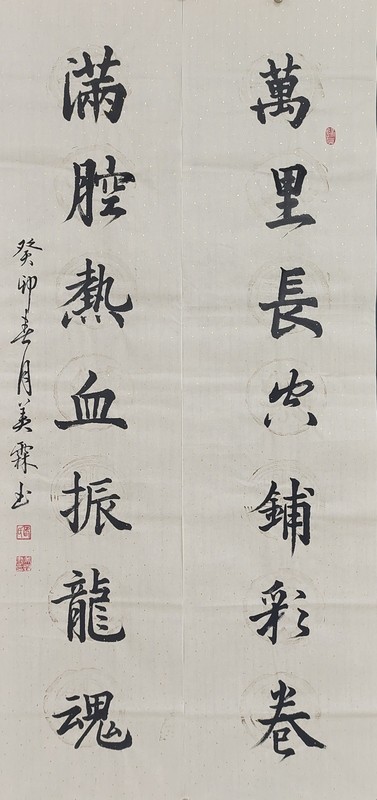 萬里長空鋪彩卷
滿腔熱血振龍魂
癸卯春月美霖书